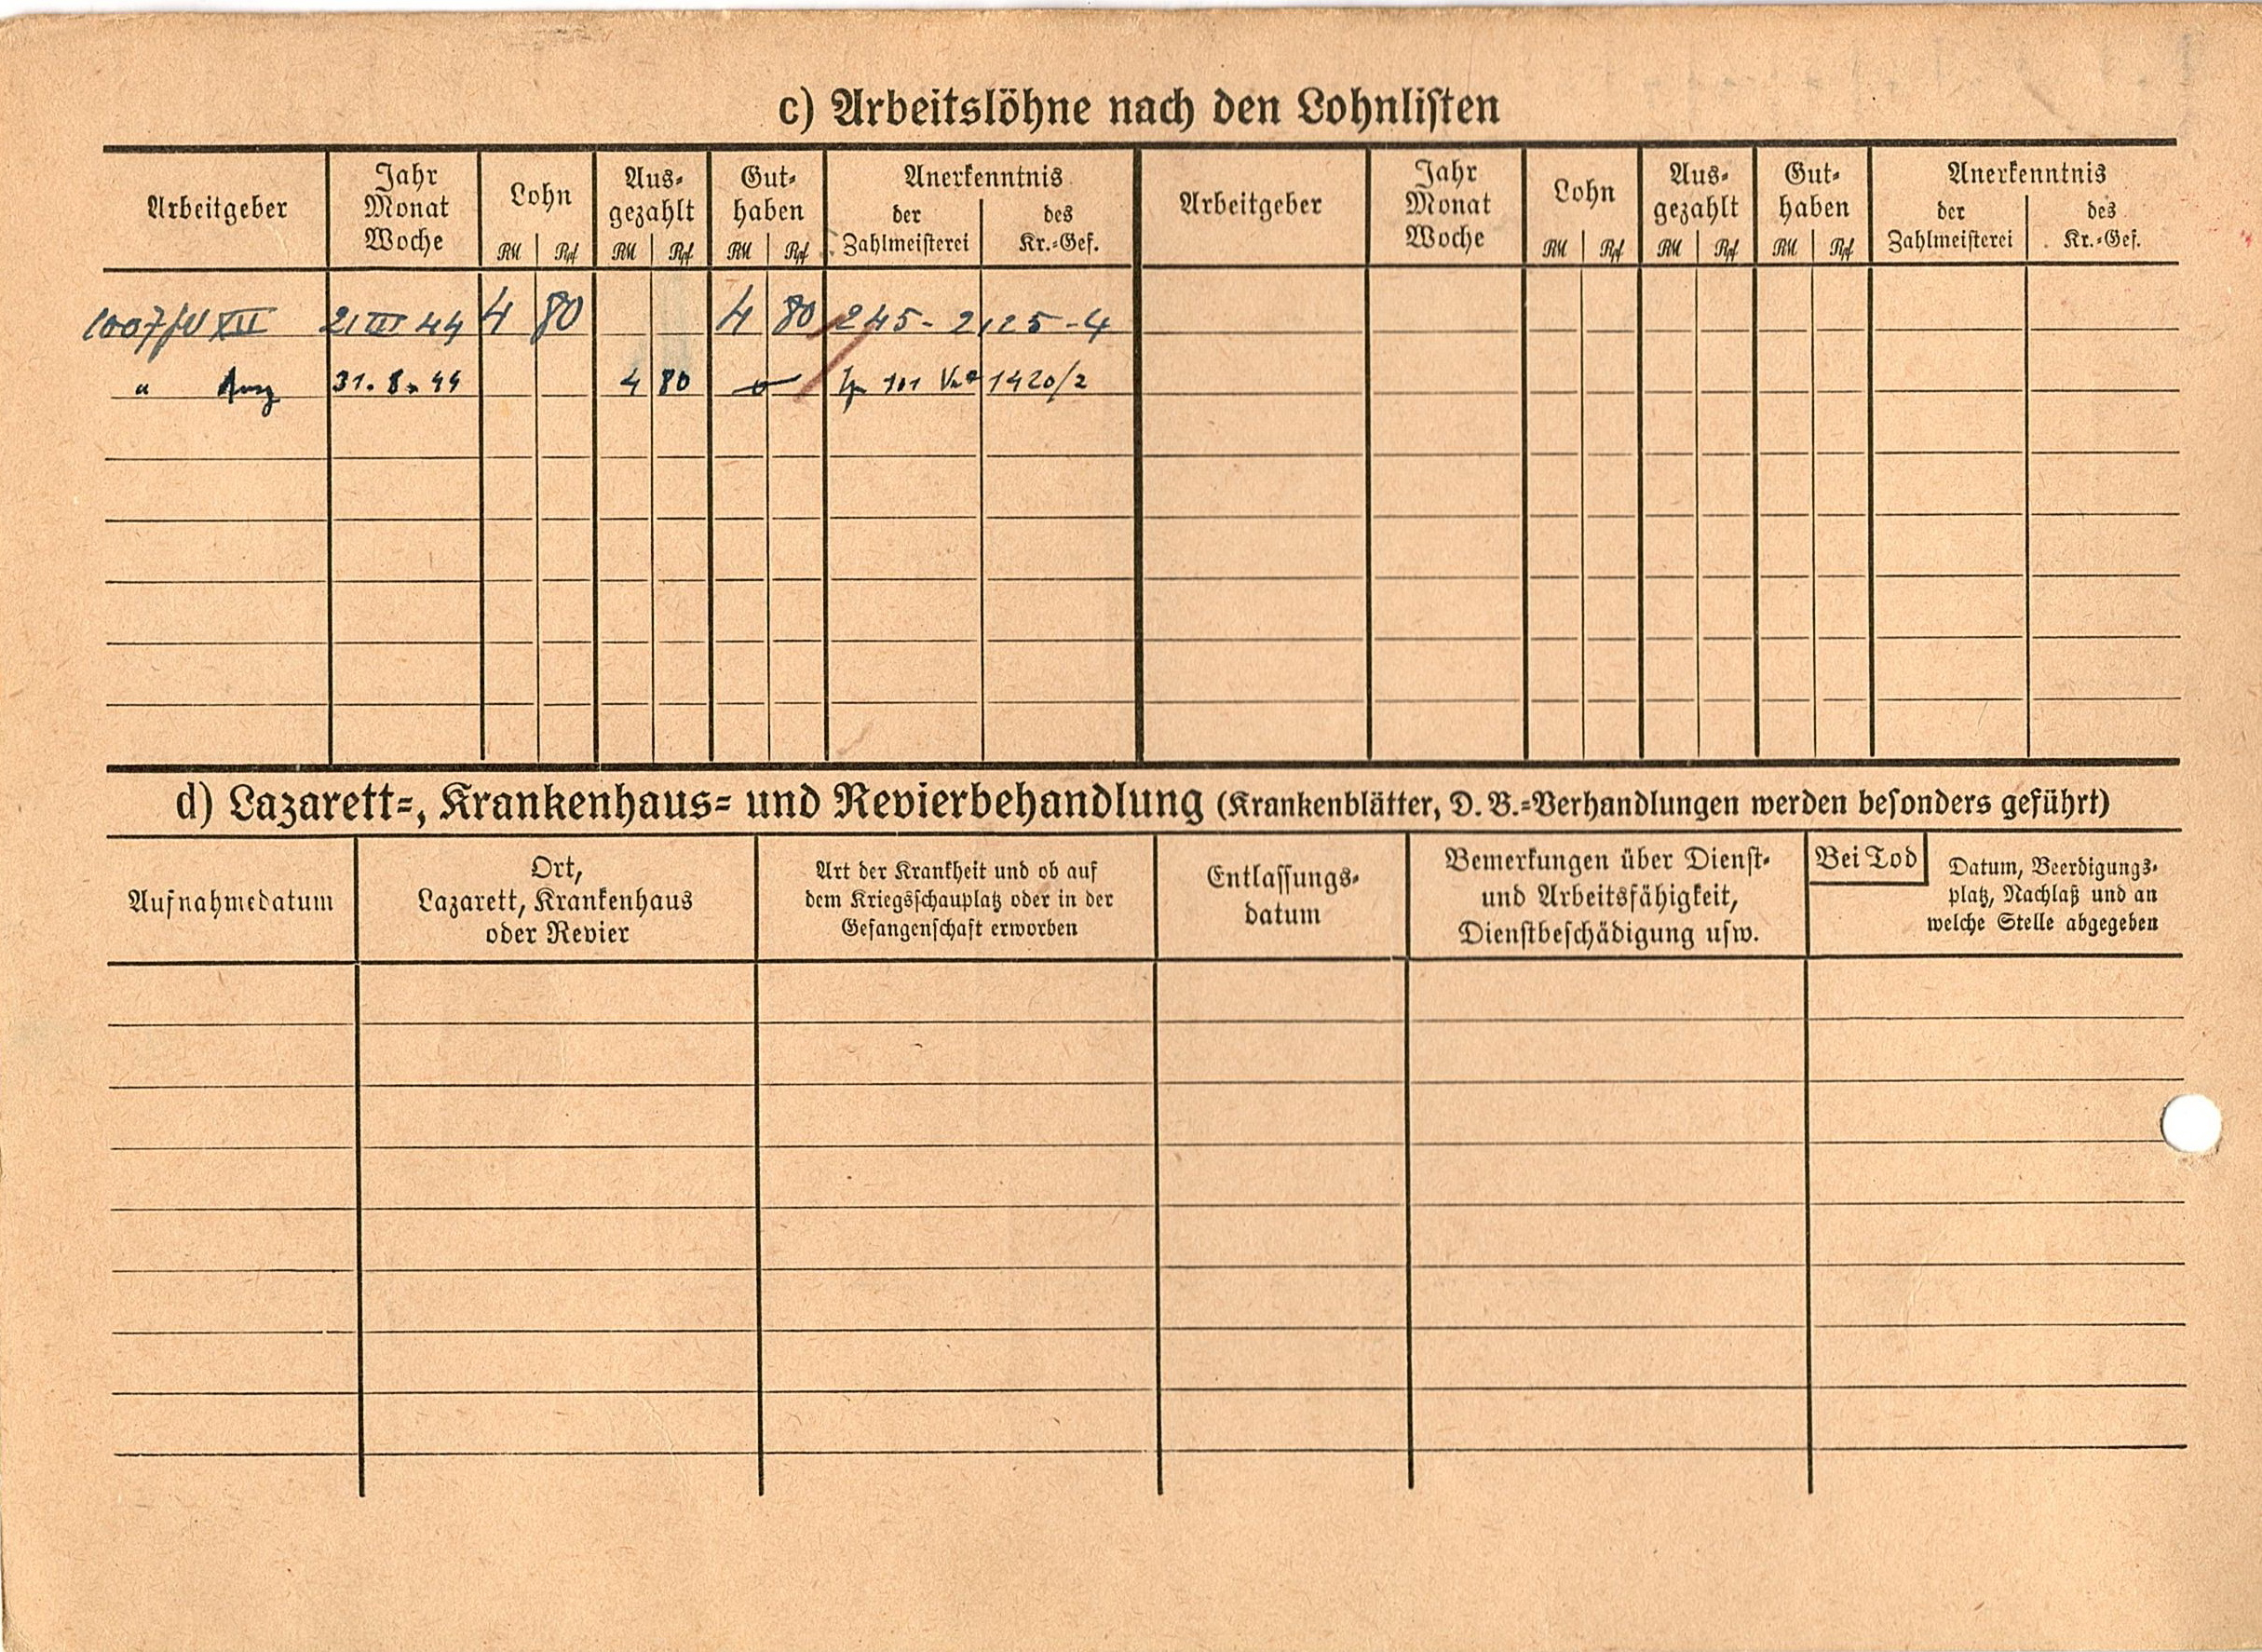 c) Arbeitslöhne nach den Lohnlisten
Arbeitgeber
Jahr
Monat
Woche
Lohn
RM Rpf
Aus-
gezahlt
RM Rpf
Gut-
haben
RM Rpf
Anerkenntnis
der
Zahlmeisterei
des
Kr.-Gef.
Arbeitgeber
Jahr
Monat
Woche
Lohn
RM Rpf
Aus-
gezahlt
RM Rpf
Gut-
haben
RM Rpf
Anerkenntnis
der
Zahlmeisterei
des
Kr.-Gef.
XII 21 III 44 4 80 4 80 245-2,25-4
" 31. 8. 44 4 80 101 1420/2
d) Lazarett-, Krankenhaus- und Revierbehandlung (Krankenblätter, D. B.-Verhandlungen werden besonders geführt)
Aufnahmedatum
Ort,
Lazarett, Krankenhaus
oder Revier
Art der Krankheit und ob auf
dem Kriegsschauplatz oder in der
Gefangenschaft erworben
Entlassungs-
datum
Bemerkungen über Dienst-
und Arbeitsfähigkeit,
Dienstbeschädigung usw.
Bei Tod
Datum, Beerdigungs-
platz, Nachlaß und an
welche Stelle abgegeben